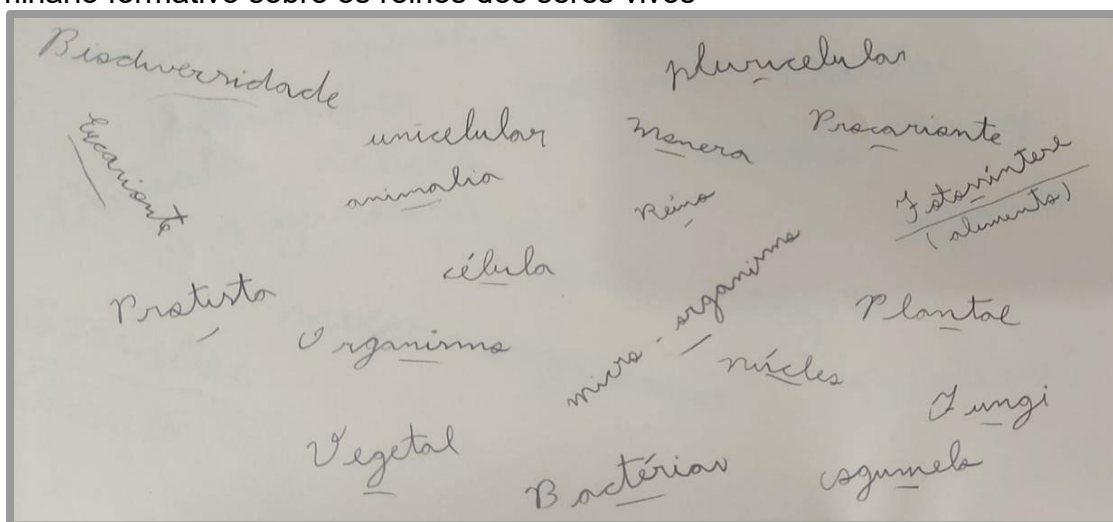 Biodiversidade
pluricelular
Eucarionte
unicelular
Monera
Procarionte
animalia
Reino
Fotossíntese
(alimento)
célula
Protista
Organismo
micro-organismo
Plantae
núcleo
Fungi
Vegetal
Bactérias
cogumelo